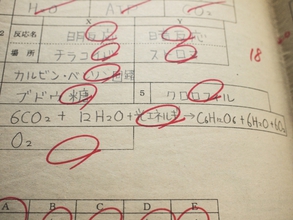 H2O
X Y
反応名 明反応 暗反応
場所 チラコイド ストロマ
18
カルビン・ベンソン回路
ブドウ糖 S クロロフィル
6CO2 + 12H2O + 光エネルギー → C6H12O6 + 6H2O + 6O2
O2
A B C D E